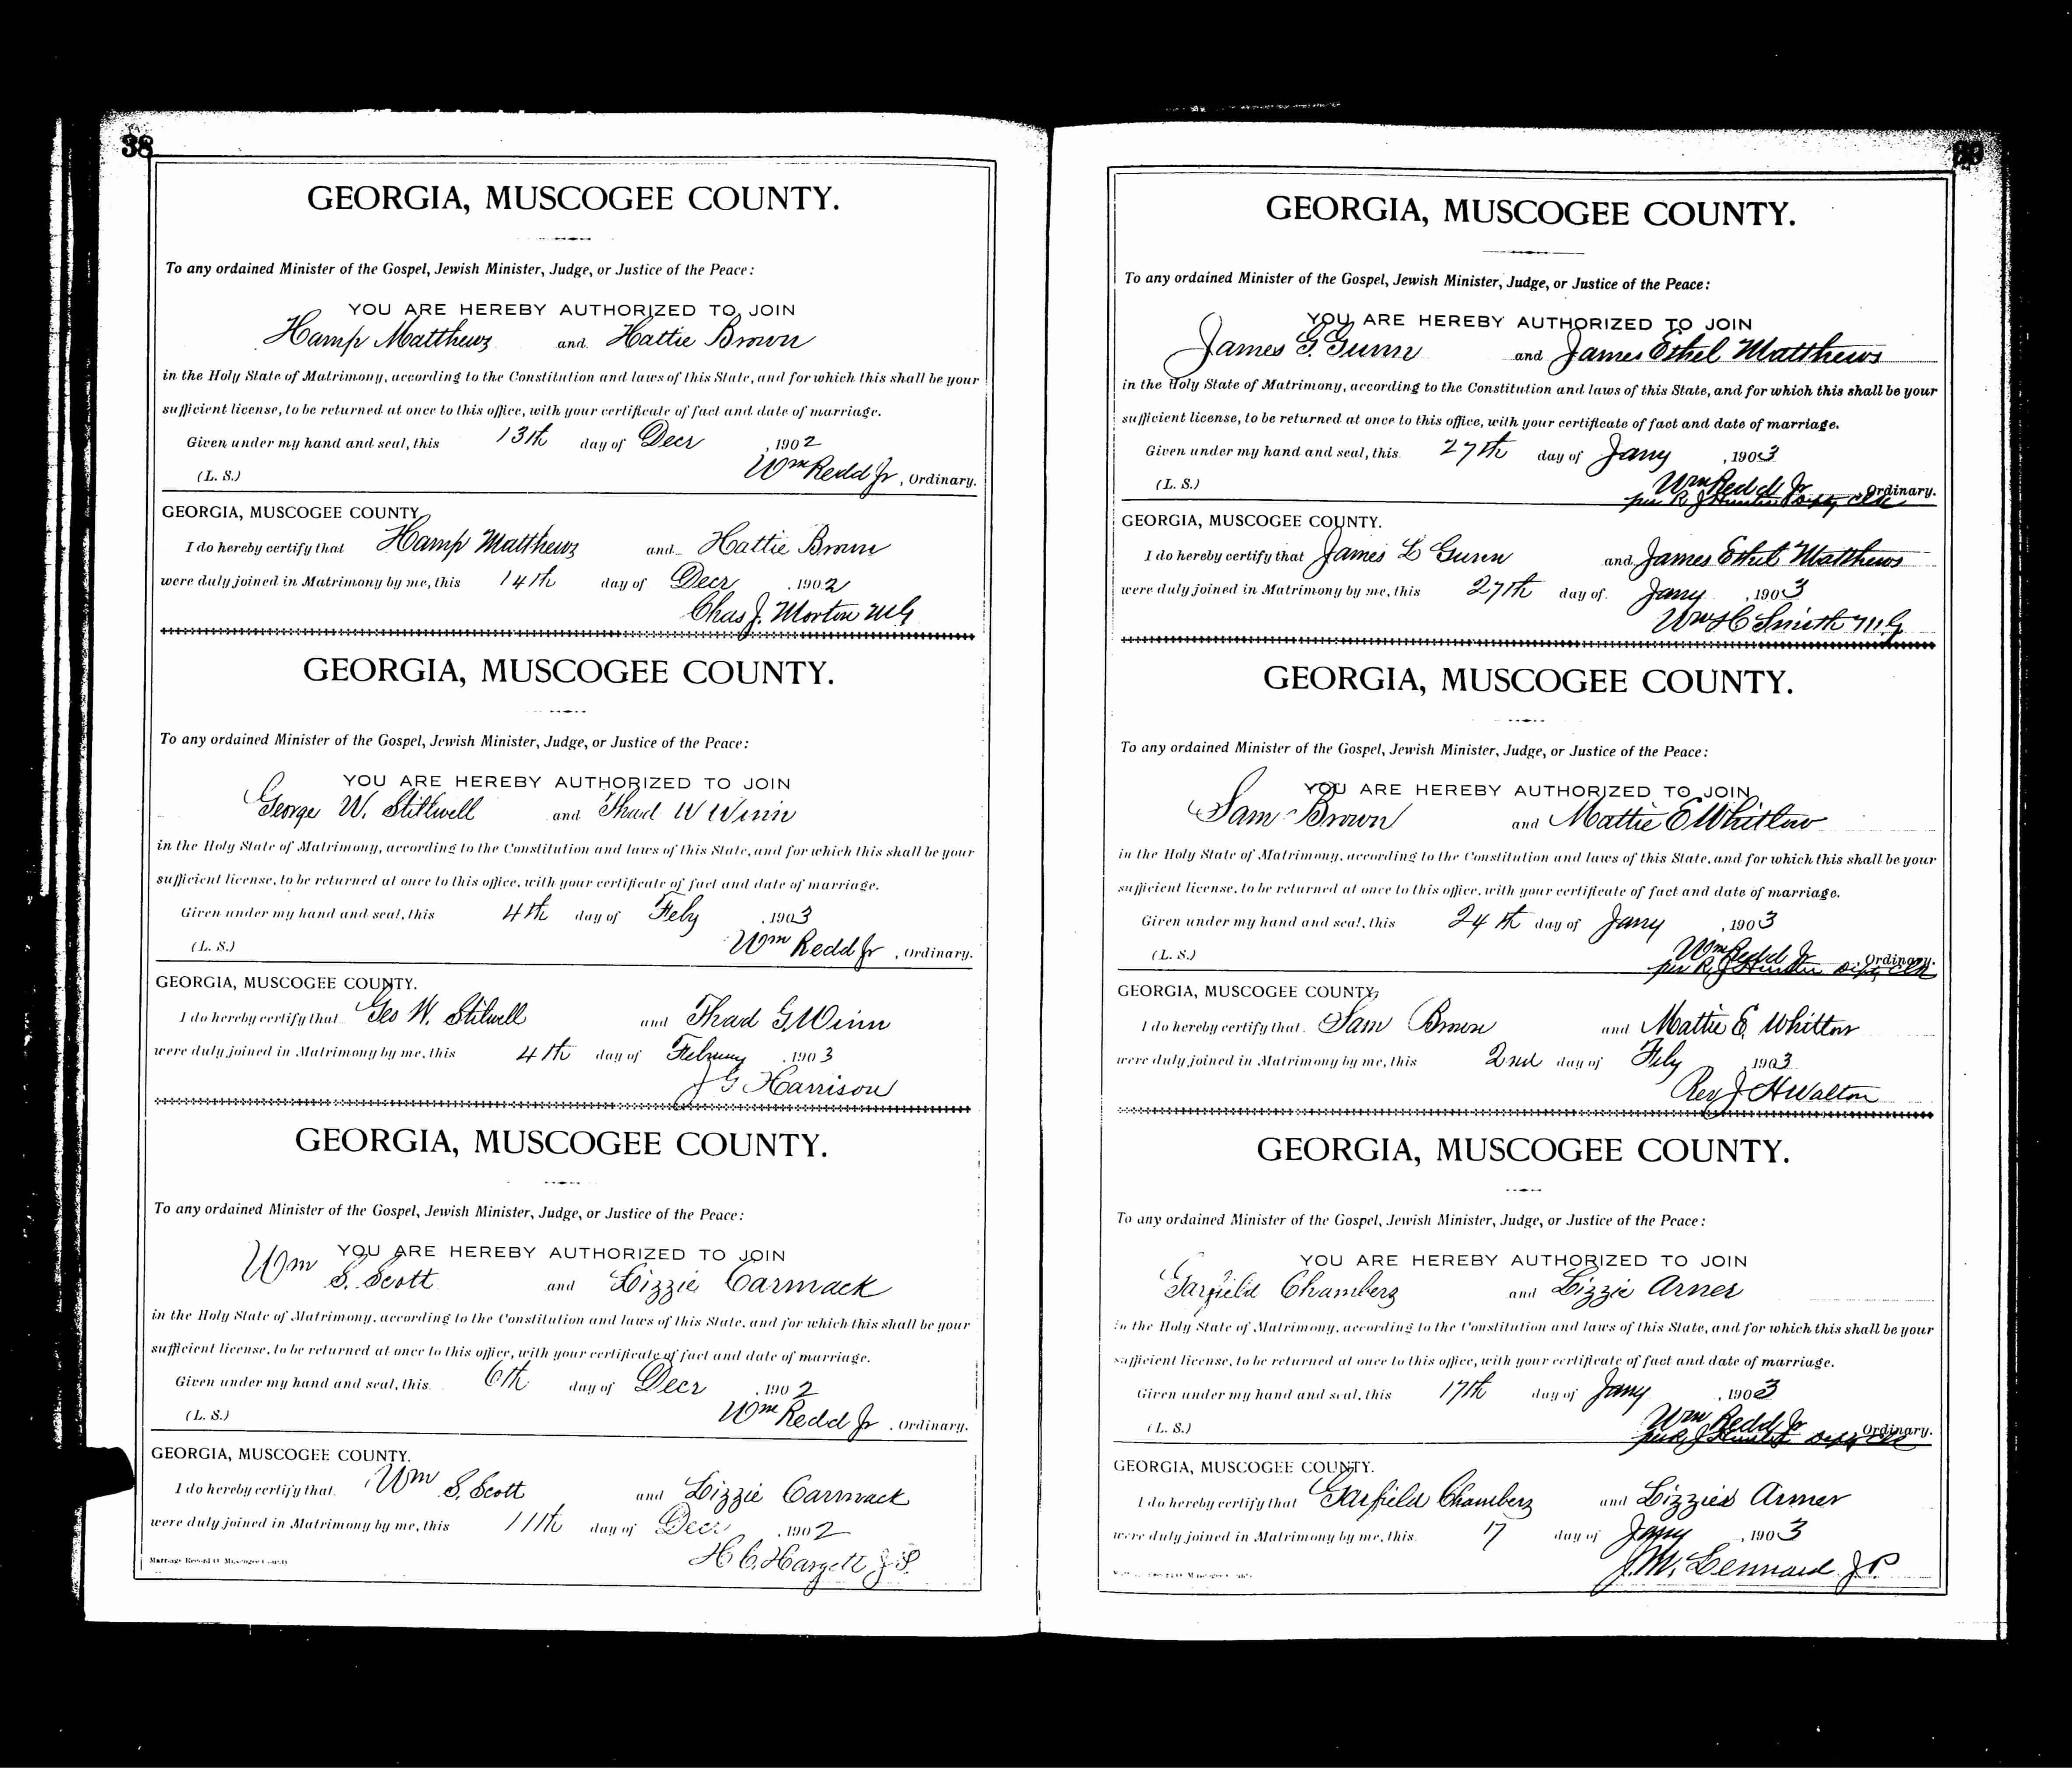 38
GEORGIA, MUSCOGEE COUNTY.
To any ordained Minister of the Gospel, Jewish Minister, Judge, or Justice of the Peace:
YOU ARE HEREBY AUTHORIZED TO JOIN
Hamp Matthews and Hattie Brown
in the Holy State of Matrimony, according to the Constitution and laws of this State, and for which this shall be your
sufficient license, to be returned at once to this office, with your certificate of fact and date of marriage.
Given under my hand and seal, this 13th day of Decr, 1902
(L. S.) Wm Redd Jr, Ordinary.
GEORGIA, MUSCOGEE COUNTY.
I do hereby certify that Hamp Matthews and Hattie Brown
were duly joined in Matrimony by me, this 14th day of Decr, 1902
Chas J. Morton MG
GEORGIA, MUSCOGEE COUNTY.
To any ordained Minister of the Gospel, Jewish Minister, Judge, or Justice of the Peace:
YOU ARE HEREBY AUTHORIZED TO JOIN
George W. Stillwell and Thad W Winn
in the Holy State of Matrimony, according to the Constitution and laws of this State, and for which this shall be your
sufficient license, to be returned at once to this office, with your certificate of fact and date of marriage.
Given under my hand and seal, this 4th day of Feby, 1903
(L. S.) Wm Redd Jr, Ordinary.
GEORGIA, MUSCOGEE COUNTY.
I do hereby certify that Geo W. Stilwell and Thad G. Winn
were duly joined in Matrimony by me, this 4th day of Februay, 1903
J G Harrison
GEORGIA, MUSCOGEE COUNTY.
To any ordained Minister of the Gospel, Jewish Minister, Judge, or Justice of the Peace:
YOU ARE HEREBY AUTHORIZED TO JOIN
Wm S. Scott and Lizzie Carmack
in the Holy State of Matrimony, according to the Constitution and laws of this State, and for which this shall be your
sufficient license, to be returned at once to this office, with your certificate of fact and date of marriage.
Given under my hand and seal, this 6th day of Decr, 1902
(L. S.) Wm Redd Jr, Ordinary.
GEORGIA, MUSCOGEE COUNTY.
I do hereby certify that Wm S. Scott and Lizzie Carmack
were duly joined in Matrimony by me, this 11th day of Decr, 1902
H C. Hargett J.P.
Marriage Record O Muscogee County
39
GEORGIA, MUSCOGEE COUNTY.
To any ordained Minister of the Gospel, Jewish Minister, Judge, or Justice of the Peace:
YOU ARE HEREBY AUTHORIZED TO JOIN
James G. Gunn and James Ethel Matthews
in the Holy State of Matrimony, according to the Constitution and laws of this State, and for which this shall be your
sufficient license, to be returned at once to this office, with your certificate of fact and date of marriage.
Given under my hand and seal, this 27th day of Jany, 1903
(L. S.) Wm Redd Jr, Ordinary.
per R J Hunter Depty Clk
GEORGIA, MUSCOGEE COUNTY.
I do hereby certify that James L Gunn and James Ethel Matthews
were duly joined in Matrimony by me, this 27th day of Jany, 1903
Wm H C Smith MG
GEORGIA, MUSCOGEE COUNTY.
To any ordained Minister of the Gospel, Jewish Minister, Judge, or Justice of the Peace:
YOU ARE HEREBY AUTHORIZED TO JOIN
Sam Brown and Mattie E Whitlow
in the Holy State of Matrimony, according to the Constitution and laws of this State, and for which this shall be your
sufficient license, to be returned at once to this office, with your certificate of fact and date of marriage.
Given under my hand and seal, this 24th day of Jany, 1903
(L. S.) Wm Redd Jr, Ordinary.
per R J Hunter Depty Clk
GEORGIA, MUSCOGEE COUNTY.
I do hereby certify that Sam Brown and Mattie E. Whitlow
were duly joined in Matrimony by me, this 2nd day of Feby, 1903
Rev J H Walton
GEORGIA, MUSCOGEE COUNTY.
To any ordained Minister of the Gospel, Jewish Minister, Judge, or Justice of the Peace:
YOU ARE HEREBY AUTHORIZED TO JOIN
Garfield Chambers and Lizzie Arner
in the Holy State of Matrimony, according to the Constitution and laws of this State, and for which this shall be your
sufficient license, to be returned at once to this office, with your certificate of fact and date of marriage.
Given under my hand and seal, this 17th day of Jany, 1903
(L. S.) Wm Redd Jr, Ordinary.
per R J Hunter Depty Clk
GEORGIA, MUSCOGEE COUNTY.
I do hereby certify that Garfield Chambers and Lizzie Armer
were duly joined in Matrimony by me, this 17 day of Jany, 1903
J. M. Lennard J P